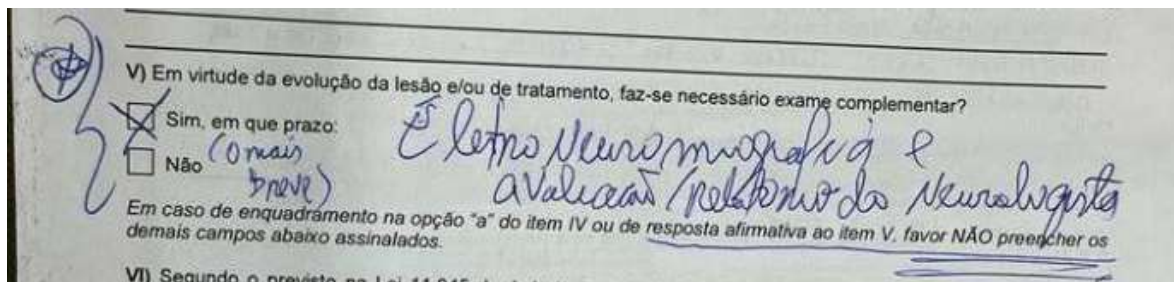 V) Em virtude da evolução da lesão e/ou de tratamento, faz-se necessário exame complementar?
Sim, em que prazo: Eletro Neuromiografia e
Não (o mais breve) avaliação/relatório do Neurologista
Em caso de enquadramento na opção "a" do item IV ou de resposta afirmativa ao item V, favor NÃO preencher os
demais campos abaixo assinalados.
VI) Segundo o previsto na Lei 11.945